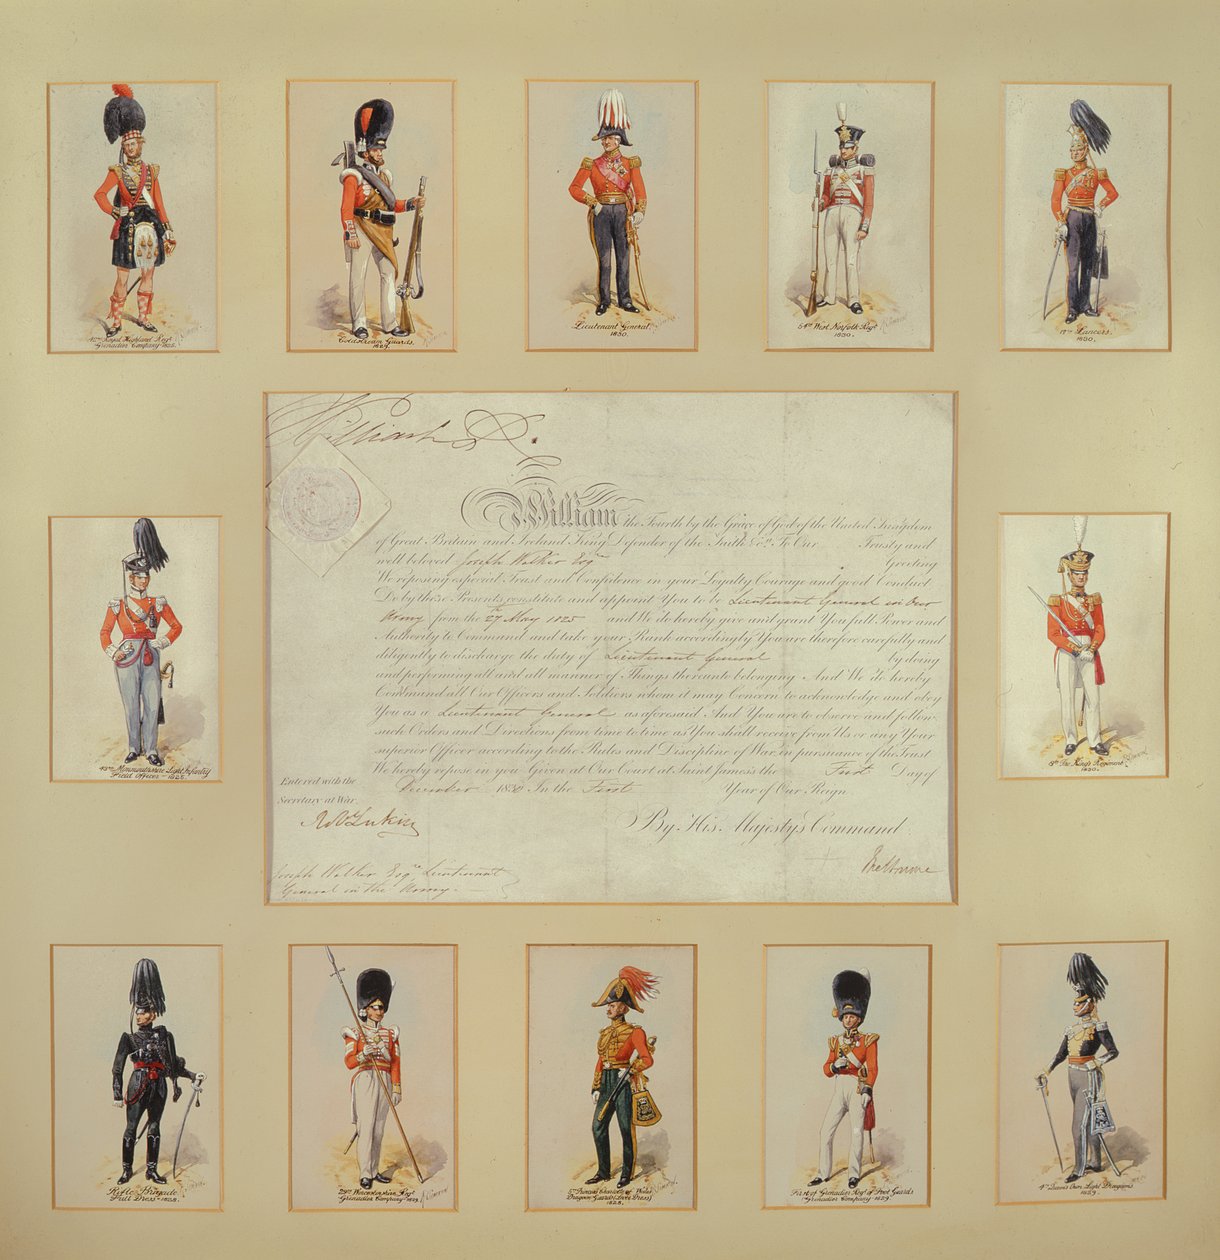 42nd Royal Highland Regt
Grenadier Company 1825.
Coldstream Guards.
Lieutenant General.
1830.
54th West Norfolk Regt
1830.
17th Lancers.
1830.
William R.
William the Fourth by the Grace of God of the United Kingdom
of Great Britain and Ireland King Defender of the Faith &c. To Our Trusty and
well beloved Joseph Walker Esqre Greeting
We reposing especial Trust and Confidence in your Loyalty Courage and good Conduct
do by these Presents constitute and appoint You to be Lieutenant General in Our
Army from the 27th May 1825 and We do hereby give and grant You full Power and
Authority to Command and take your Rank accordingly You are therefore carefully and
diligently to discharge the duty of Lieutenant General by doing
and performing all and all manner of Things thereunto belonging And We do hereby
Command all Our Officers and Soldiers whom it may Concern to acknowledge and obey
You as a Lieutenant General as aforesaid And You are to observe and follow
such Orders and Directions from time to time as You shall receive from Us or any Your
superior Officer according to the Rules and Discipline of War in pursuance of the Trust
We hereby repose in you Given at Our Court at Saint James's the First Day of
December 1830 In the First Year of Our Reign
Entered with the
Secretary at War
By His Majesty's Command
Melbourne
Joseph Walker Esqre Lieutenant
General in the Army.
43rd Monmouthshire Light Infantry
Field Officer 1825.
8th The King's Regiment
1830.
Rifle Brigade
Full Dress 1828.
29th Worcestershire Regt
Grenadier Company 1829
5th Princess Charlotte of Wales
Dragoon Guards (Levee Dress)
1828.
First of Grenadier Regt of Foot Guards
Grenadier Company 1829
4th Queen's Own Light Dragoons
1829.